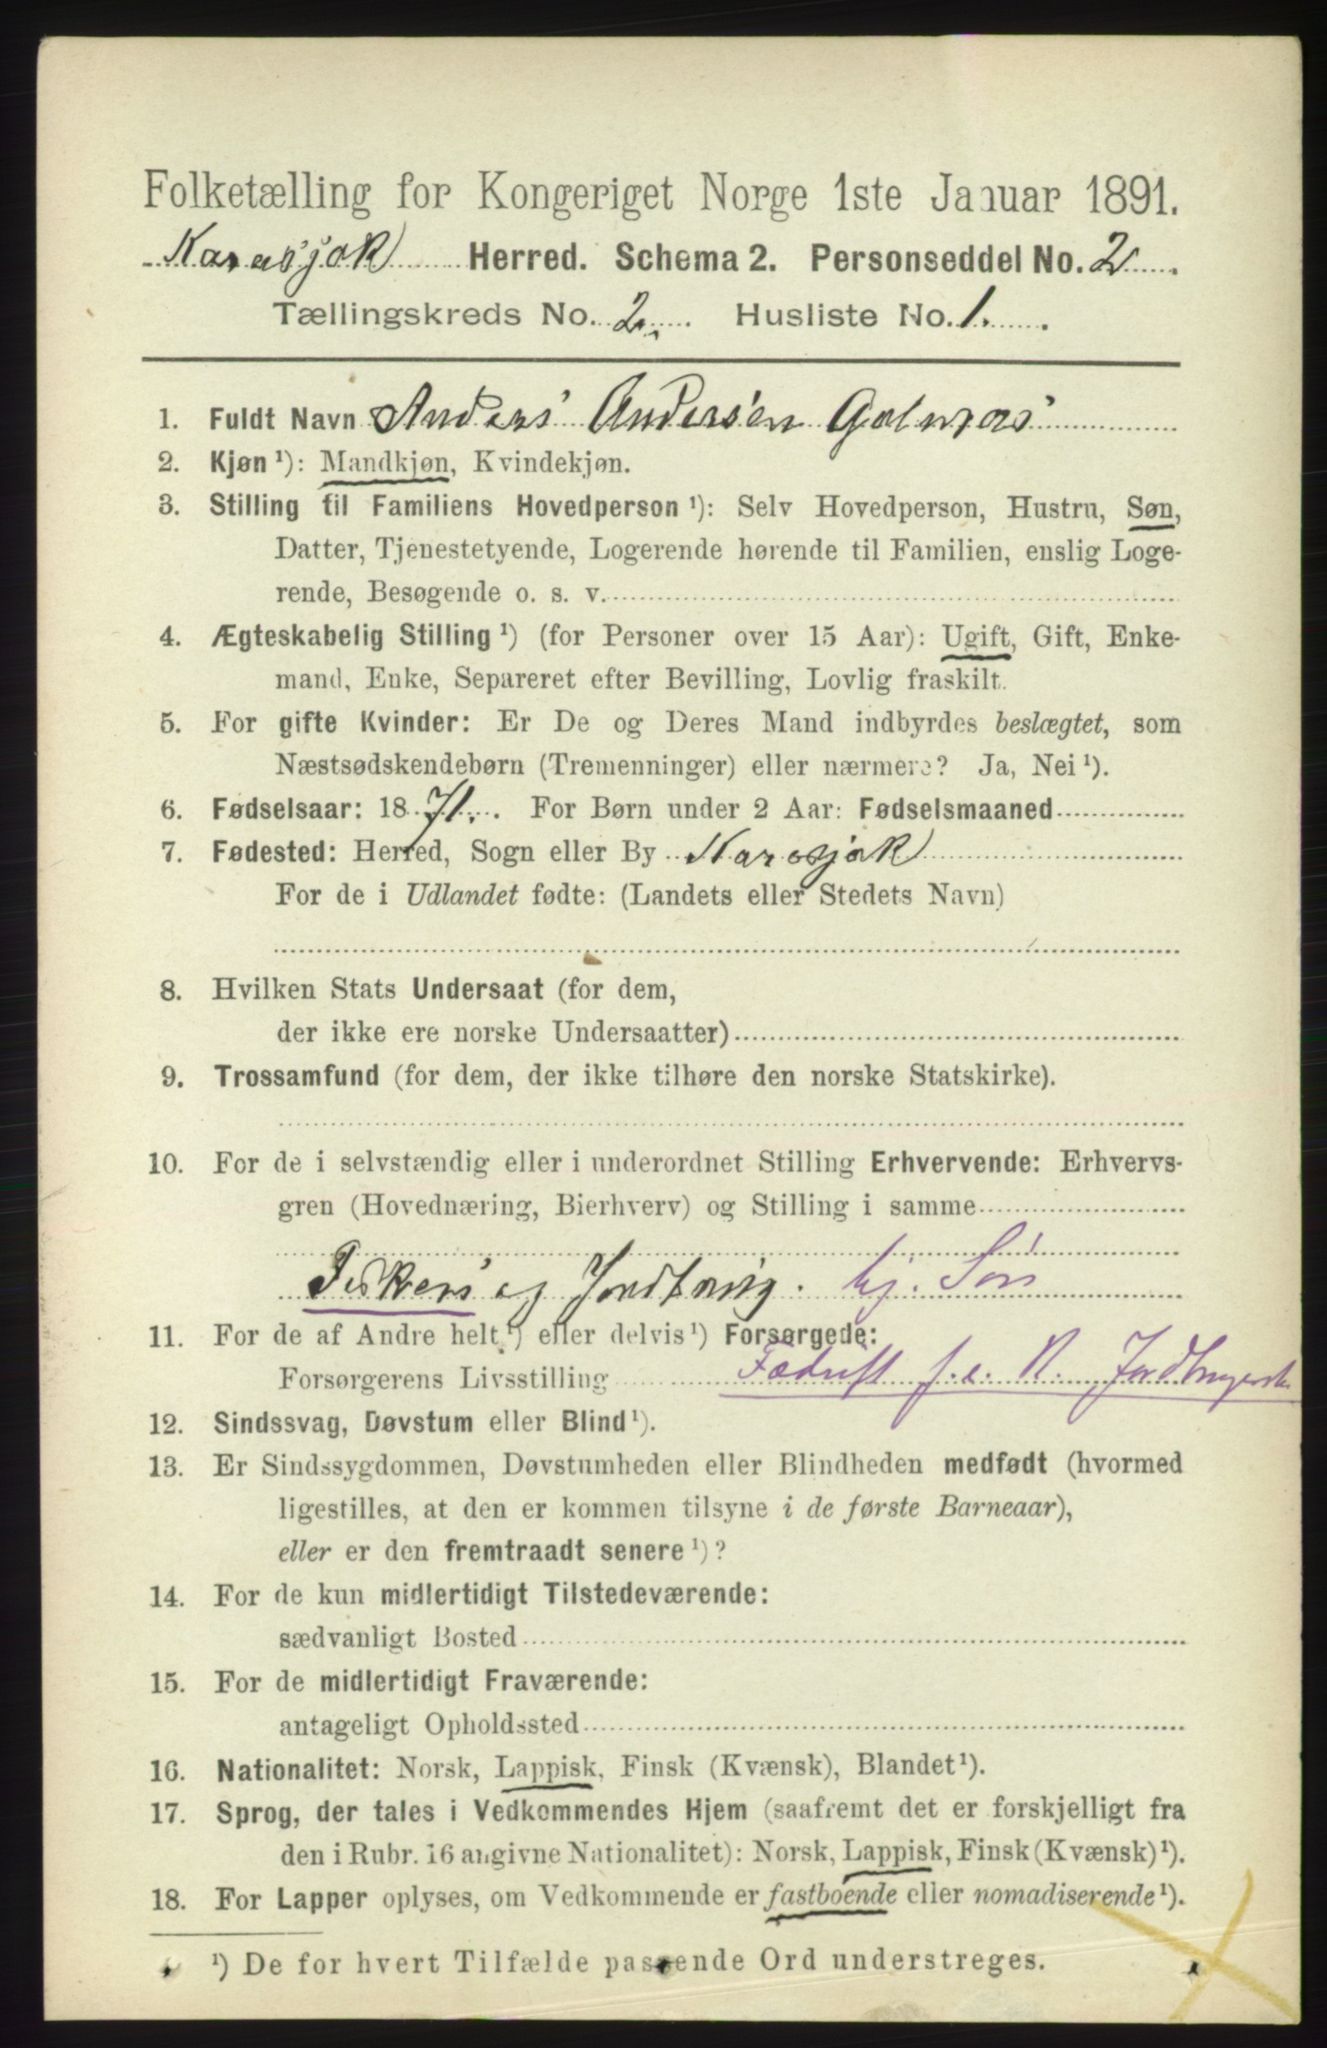 Folketælling for Kongeriget Norge 1ste Januar 1891.
Karasjok Herred. Schema 2. Personseddel No. 2
Tællingskreds No. 2. Husliste No. 1.
1. Fuldt Navn Anders Andersen
2. Kjøn ¹): Mandkjøn, Kvindekjøn.
3. Stilling til Familiens Hovedperson ¹): Selv Hovedperson, Hustru, Søn,
Datter, Tjenestetyende, Logerende hørende til Familien, enslig Loge-
rende, Besøgende o. s. v.
4. Ægteskabelig Stilling ¹) (for Personer over 15 Aar): Ugift, Gift, Enke-
mand, Enke, Separeret efter Bevilling, Lovlig fraskilt.
5. For gifte Kvinder: Er De og Deres Mand indbyrdes beslægtet, som
Næstsødskendebørn (Tremenninger) eller nærmere? Ja, Nei ¹).
6. Fødselsaar: 1871. For Børn under 2 Aar: Fødselsmaaned
7. Fødested: Herred, Sogn eller By Karasjok
For de i Udlandet fødte: (Landets eller Stedets Navn)
8. Hvilken Stats Undersaat (for dem,
der ikke ere norske Undersaatter)
9. Trossamfund (for dem, der ikke tilhøre den norske Statskirke).
10. For de i selvstændig eller i underordnet Stilling Erhvervende: Erhvervs-
gren (Hovednæring, Bierhverv) og Stilling i samme
og hj. Søn
11. For de af Andre helt ¹) eller delvis ¹) Forsørgede:
Forsørgerens Livsstilling Fædrift f. e. R.
12. Sindssvag, Døvstum eller Blind ¹).
13. Er Sindssygdommen, Døvstumheden eller Blindheden medfødt (hvormed
ligestilles, at den er kommen tilsyne i de første Barneaar),
eller er den fremtraadt senere ¹)?
14. For de kun midlertidigt Tilstedeværende:
sædvanligt Bosted
15. For de midlertidigt Fraværende:
antageligt Opholdssted
16. Nationalitet: Norsk, Lappisk, Finsk (Kvænsk), Blandet ¹).
17. Sprog, der tales i Vedkommendes Hjem (saafremt det er forskjelligt fra
den i Rubr. 16 angivne Nationalitet): Norsk, Lappisk, Finsk (Kvænsk) ¹).
18. For Lapper oplyses, om Vedkommende er fastboende eller nomadiserende ¹).
¹) De for hvert Tilfælde passende Ord understreges.